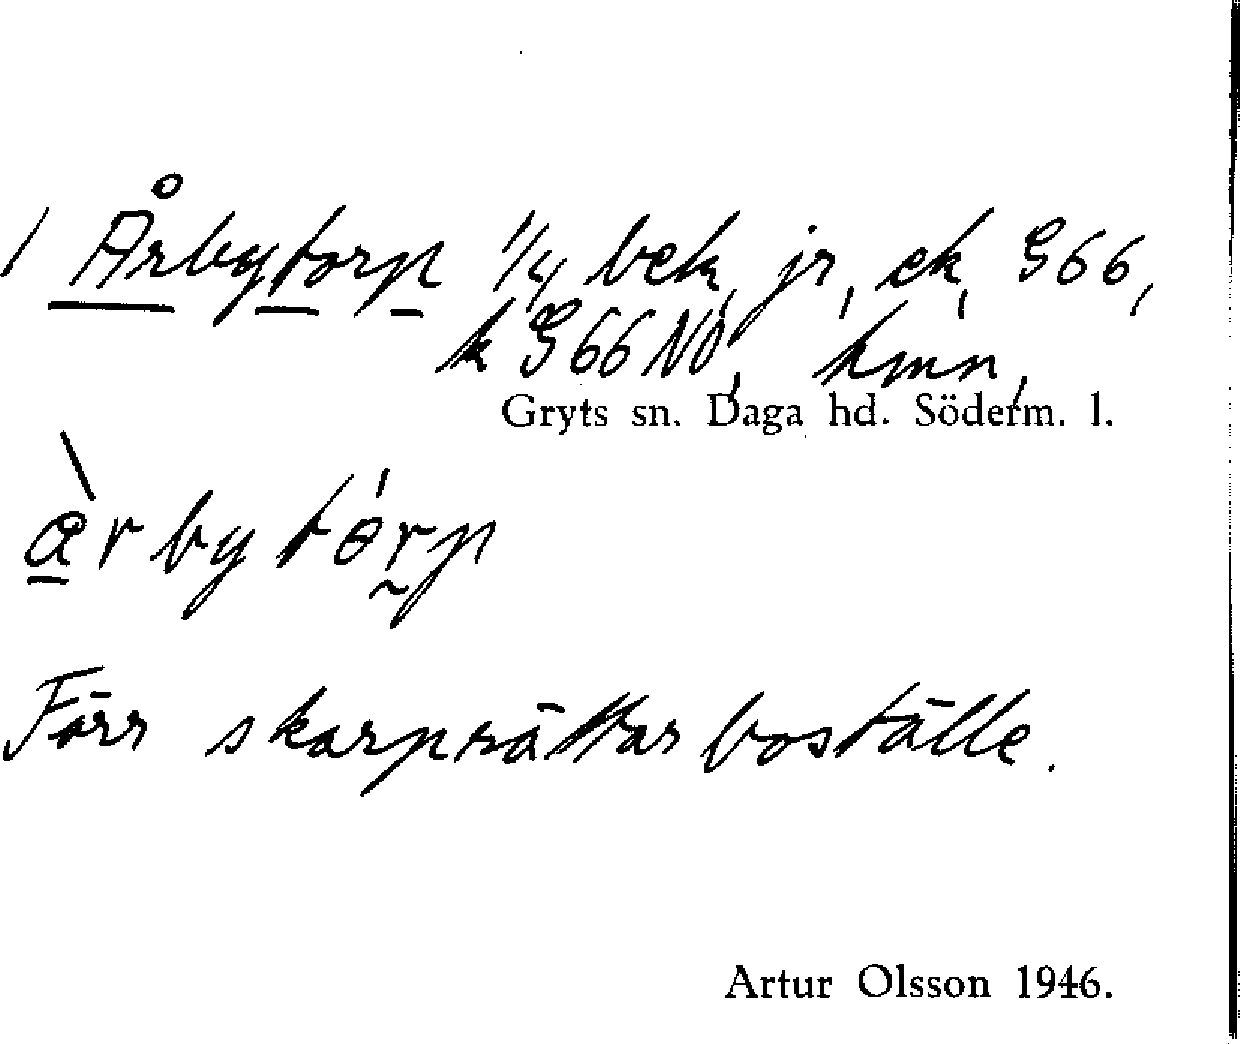 / Årbytorp 1/4 bek, jr, ek, G66,
k G66NO, kmn,
Gryts sn. Daga hd. Söderm. l.
àrbytórp
Förr skarprättarboställe.
Artur Olsson 1946.